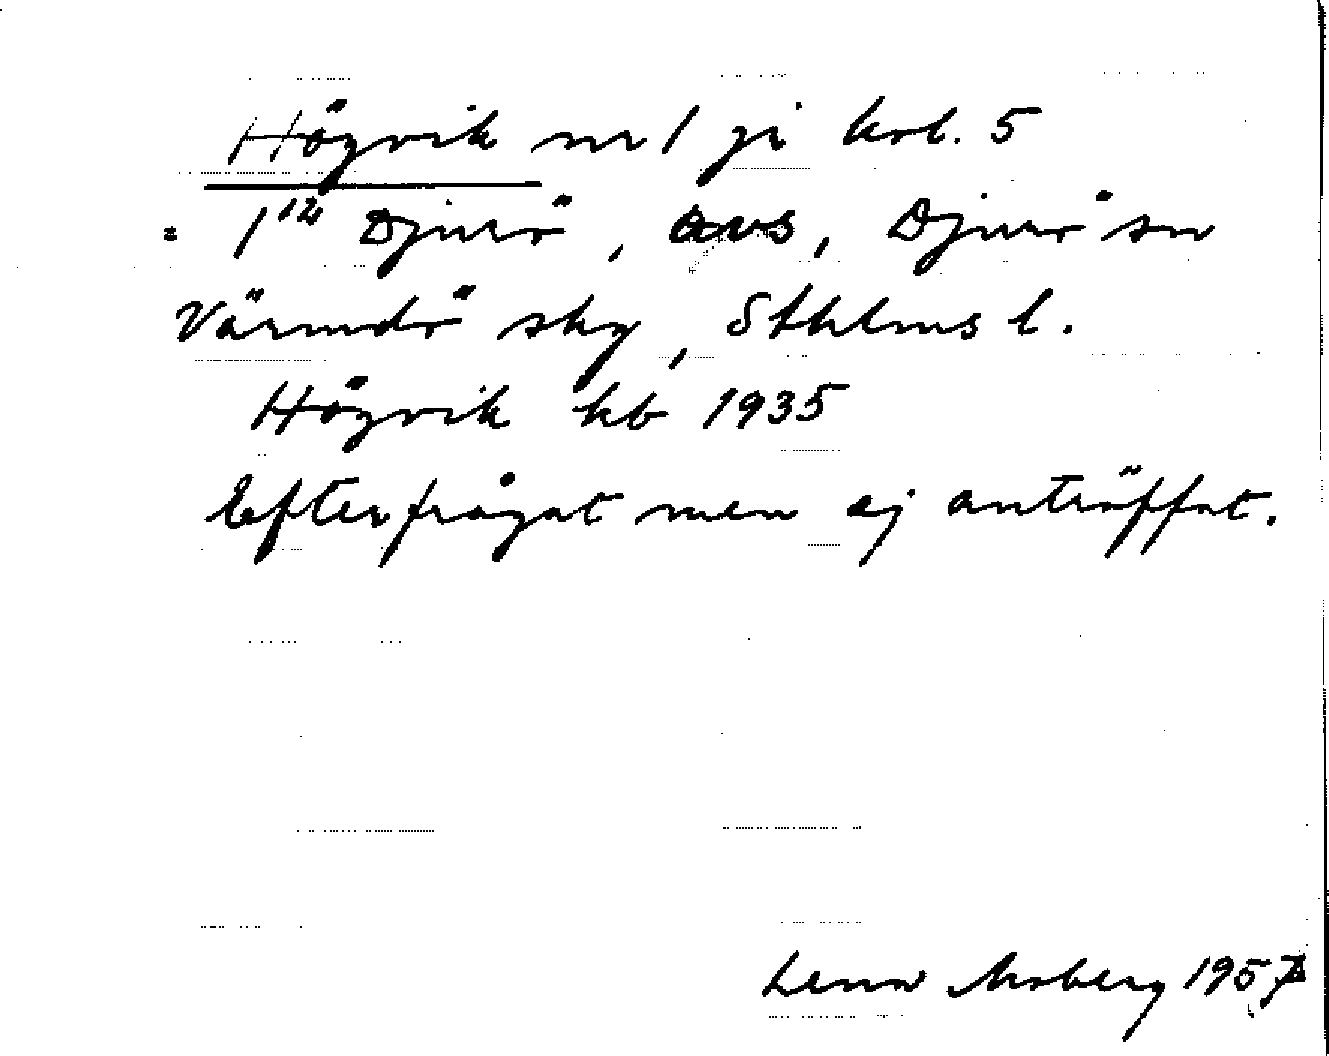 Högvik nr 1 ji kol. 5
= 1¹² Djurö, avs, Djurö sn
Värmdö skg, Sthlms l.
Högvik kb 1935
Efterfrågat men ej anträffat.
Lena Moberg 1957